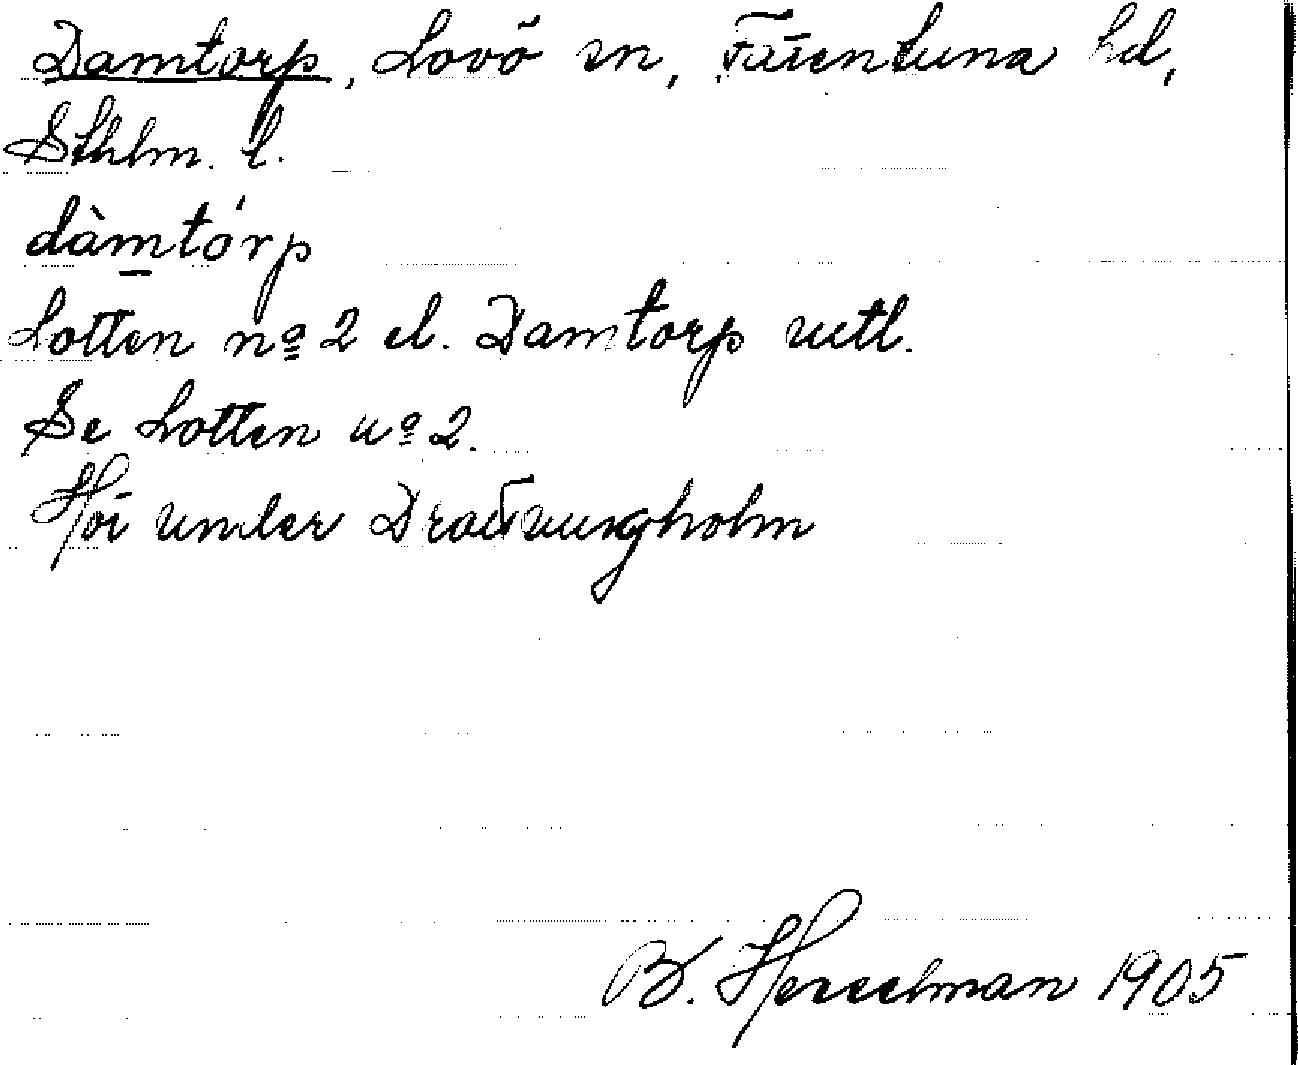 Damtorp, Lovö sn, Färentuna hd,
Sthlm. l.
dàmtórp
Lotten nº 2 el. Damtorp uttl.
Se Lotten nº 2.
Hör under Drottningholm
B. Hesselman 1905